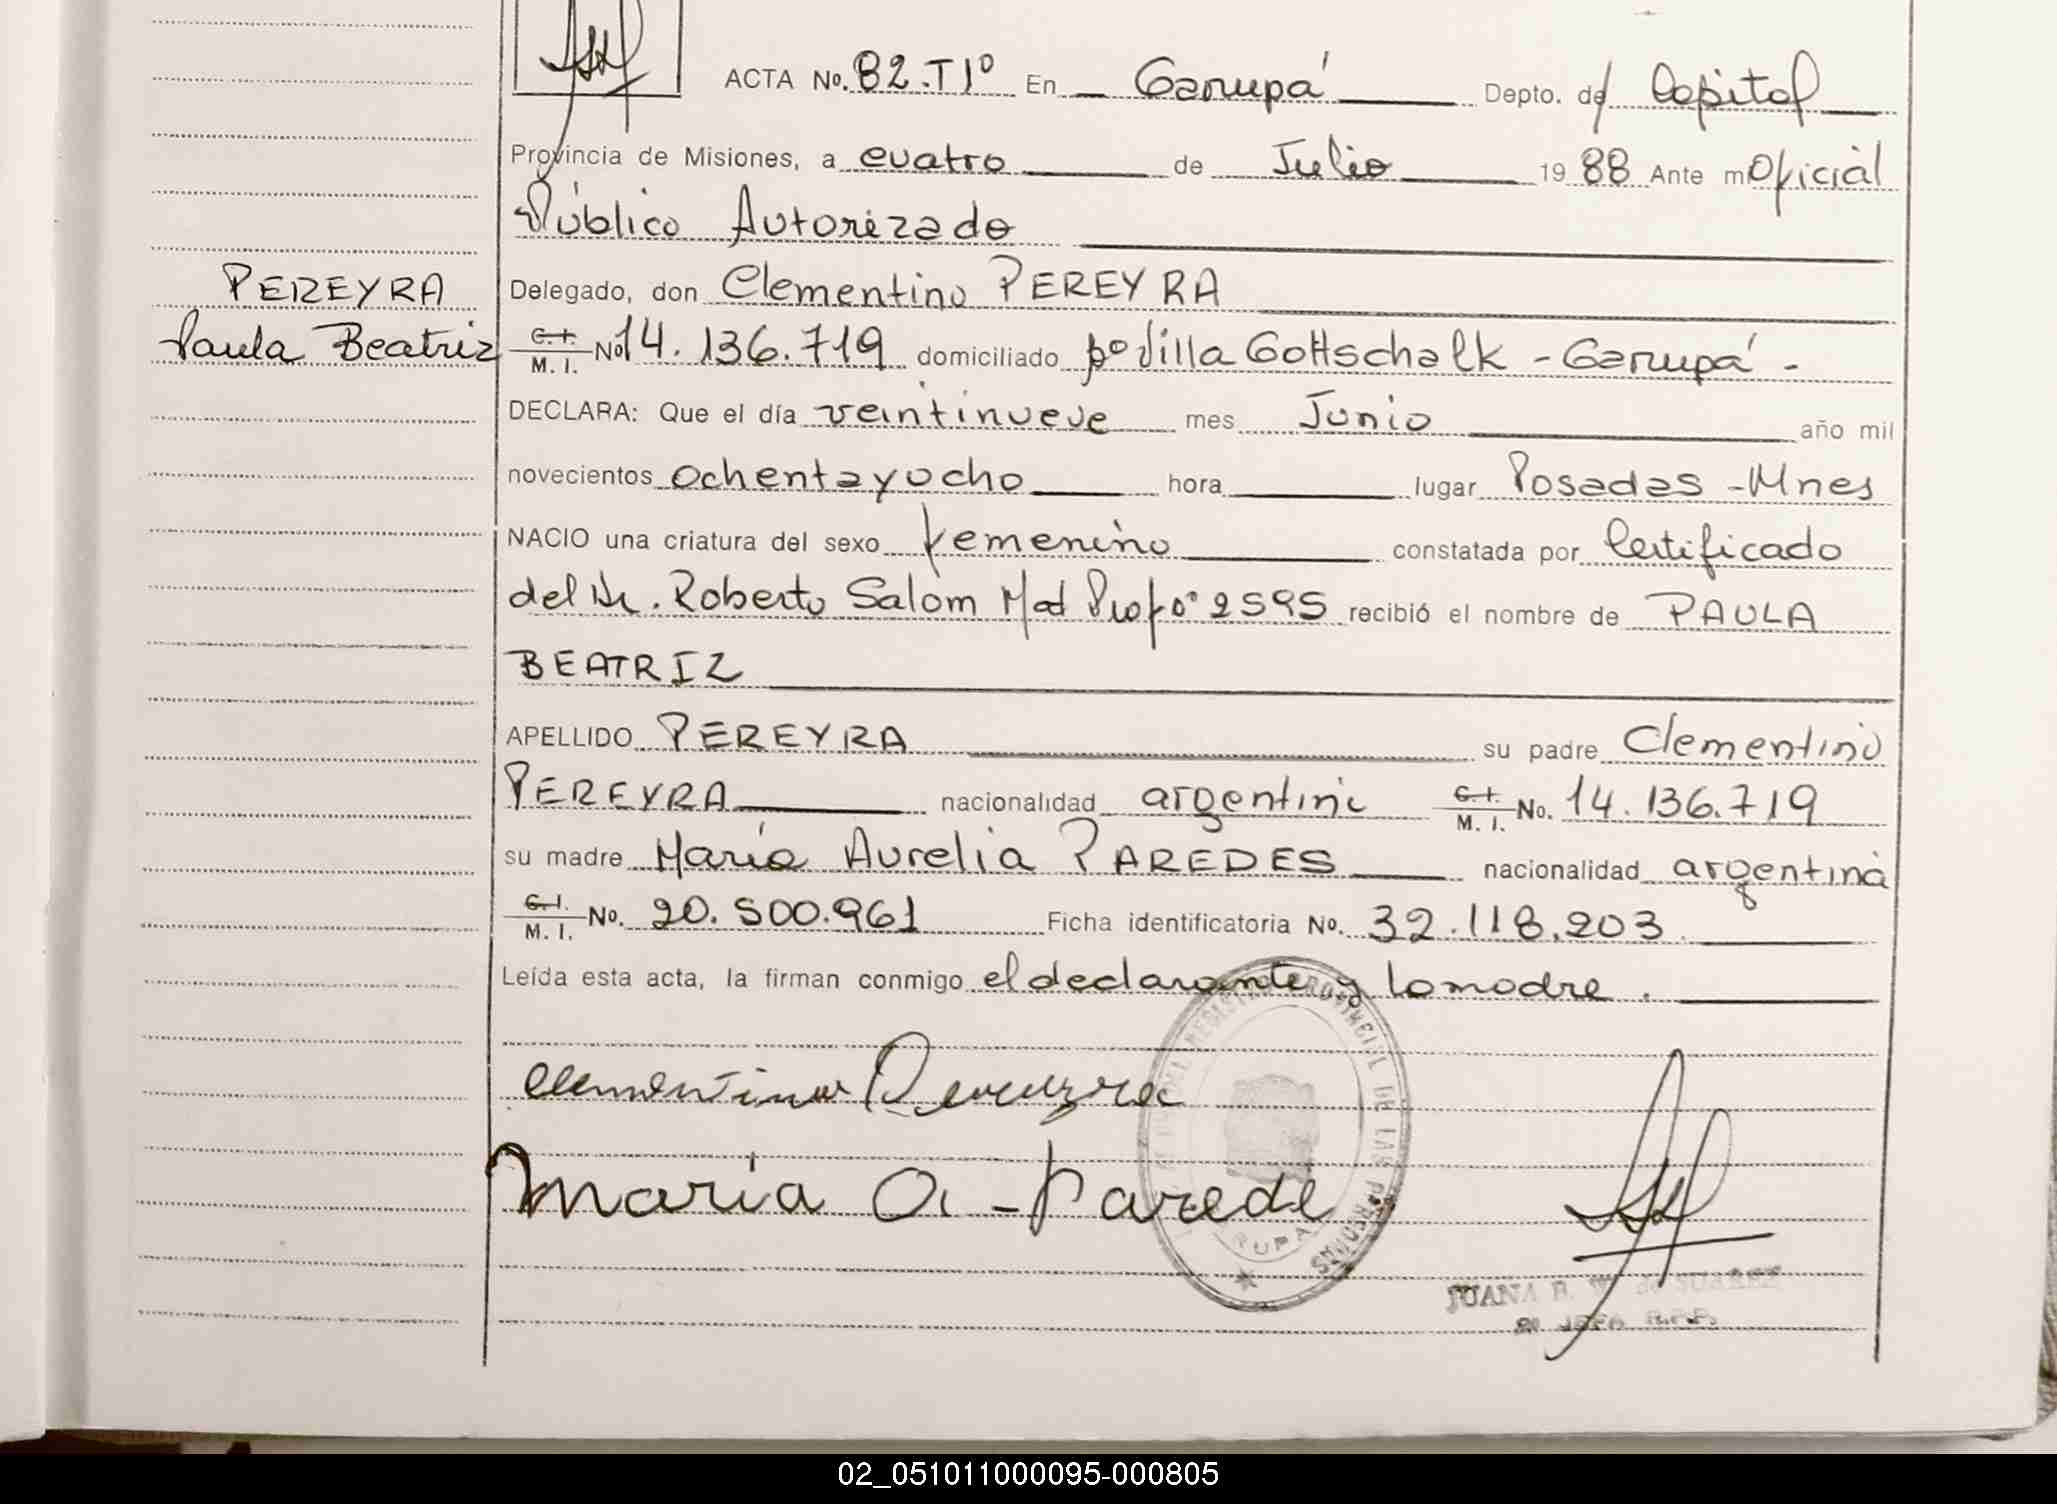 ACTA No. 82.T1º En Garupá Depto. de Capital
Provincia de Misiones, a cuatro de Julio 1988 Ante mi Oficial
Público Autorizado
PEREYRA
Paula Beatriz
Delegado, don Clementino PEREYRA
C. I. M. I. No 14.136.719 domiciliado pº Villa Gottschalk - Garupá -
DECLARA: Que el día veintinueve mes Junio año mil
novecientos ochentayocho hora lugar Posadas - Mnes
NACIO una criatura del sexo femenino constatada por Certificado
del Dr. Roberto Salom Mat Prof nº 2595 recibió el nombre de PAULA
BEATRIZ
APELLIDO PEREYRA su padre Clementino
PEREYRA nacionalidad argentina C. I. M. I. No. 14.136.719
su madre María Aurelia PAREDES nacionalidad argentina
C. I. M. I. No. 20.500.961 Ficha identificatoria No. 32.118.203
Leída esta acta, la firman conmigo el declarante y la madre.
Clementino Pereyra
Maria A - Parede
PROVINCIAL DE LAS PERSONAS
JUANA B. de SUAREZ
JEFA R.P.P.
02_051011000095-000805